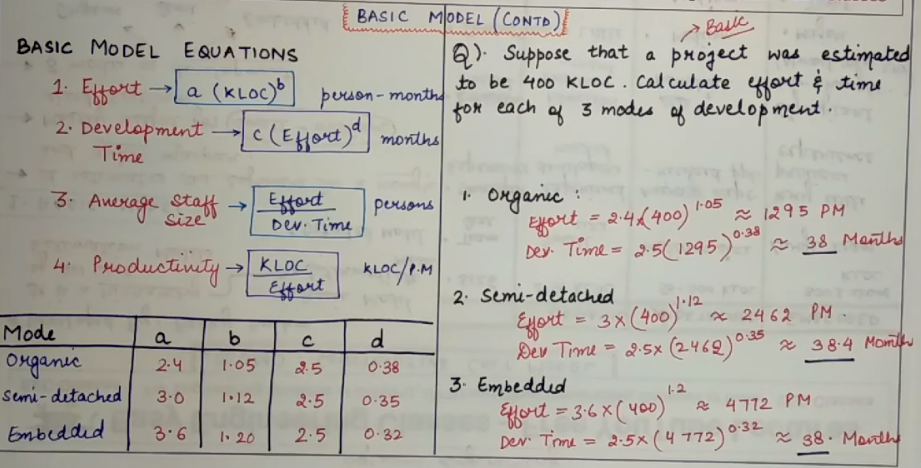 BASIC MODEL (CONTD)
BASIC MODEL EQUATIONS
1. Effort → a (KLOC)^b person-months
2. Development Time → c (Effort)^d months
3. Average Staff Size → Effort / Dev. Time persons
4. Productivity → KLOC / Effort KLOC/P.M
Mode a b c d
Organic 2.4 1.05 2.5 0.38
Semi-detached 3.0 1.12 2.5 0.35
Embedded 3.6 1.20 2.5 0.32
→ Basic
Q). Suppose that a project was estimated
to be 400 KLOC. Calculate effort & time
for each of 3 modes of development.
1. Organic :
Effort = 2.4×(400)^1.05 ≈ 1295 PM
Dev. Time = 2.5(1295)^0.38 ≈ 38 Months
2. Semi-detached
Effort = 3×(400)^1.12 ≈ 2462 PM.
Dev Time = 2.5×(2462)^0.35 ≈ 38.4 Months
3. Embedded
Effort = 3.6×(400)^1.2 ≈ 4772 PM
Dev. Time = 2.5×(4772)^0.32 ≈ 38. Months